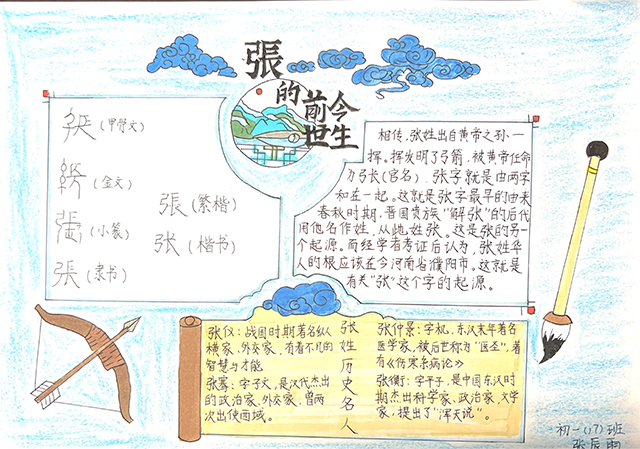 張
的
前世
今生
(甲骨文)
(金文)
(小篆)
張(隶书)
張(繁楷)
张(楷书)
相传,张姓出自黄帝之孙一
挥。挥发明了弓箭,被黄帝任命
为弓长(官名)。张字就是由两字
和在一起。这就是张字最早的由来
春秋时期,晋国贵族"解张"的后代
用他名作姓,从此姓张。这是张的另一
个起源。而经学者考证后认为,张姓华
人的根应该在今河南省濮阳市。这就是
有关"张"这个字的起源。
张仪:战国时期著名纵
横家,外交家,有着不凡的
智慧与才能
张骞:字子文,是汉代杰出
的政治家、外交家,曾两
次出使西域。
张姓历史名人
张仲景:字机,东汉末年著名
医学家,被后世称为"医圣",著
有《伤寒杂病论》
张衡:字平子,是中国东汉时
期杰出科学家、政治家、文学
家,提出了"浑天说"。
初一(17)班
张辰雨